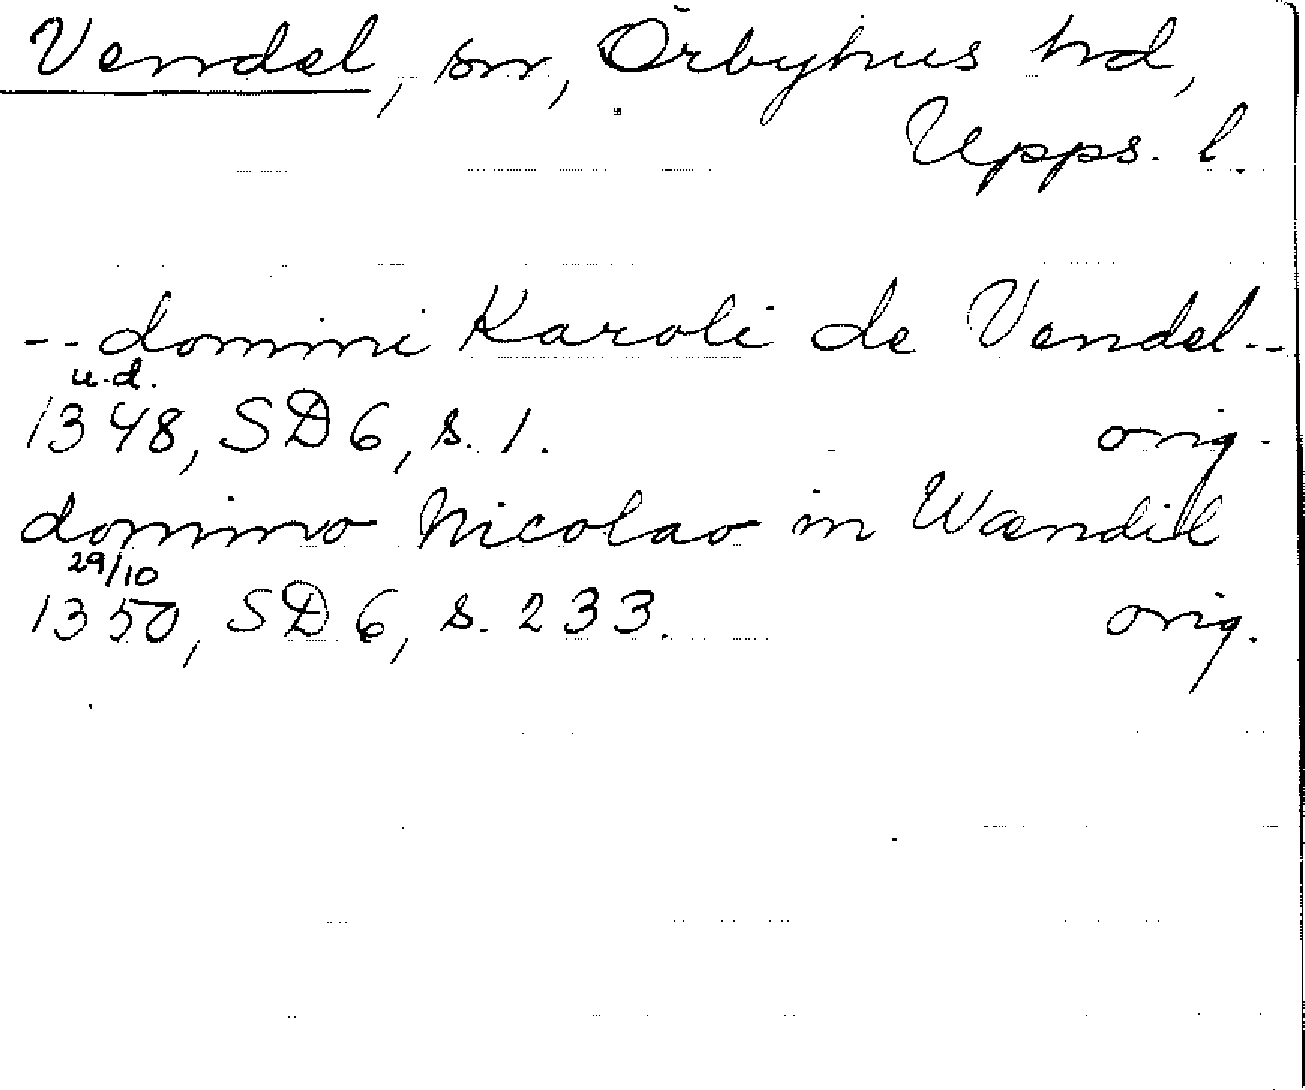 Vendel, sn, Örbyhus hd,
Upps. l.
-- domini Karoli de Vendel --
u.d.
1348, SD 6, s. 1. orig.
domino Nicolao in Wændil
29/10
1350, SD 6, s. 233. orig.